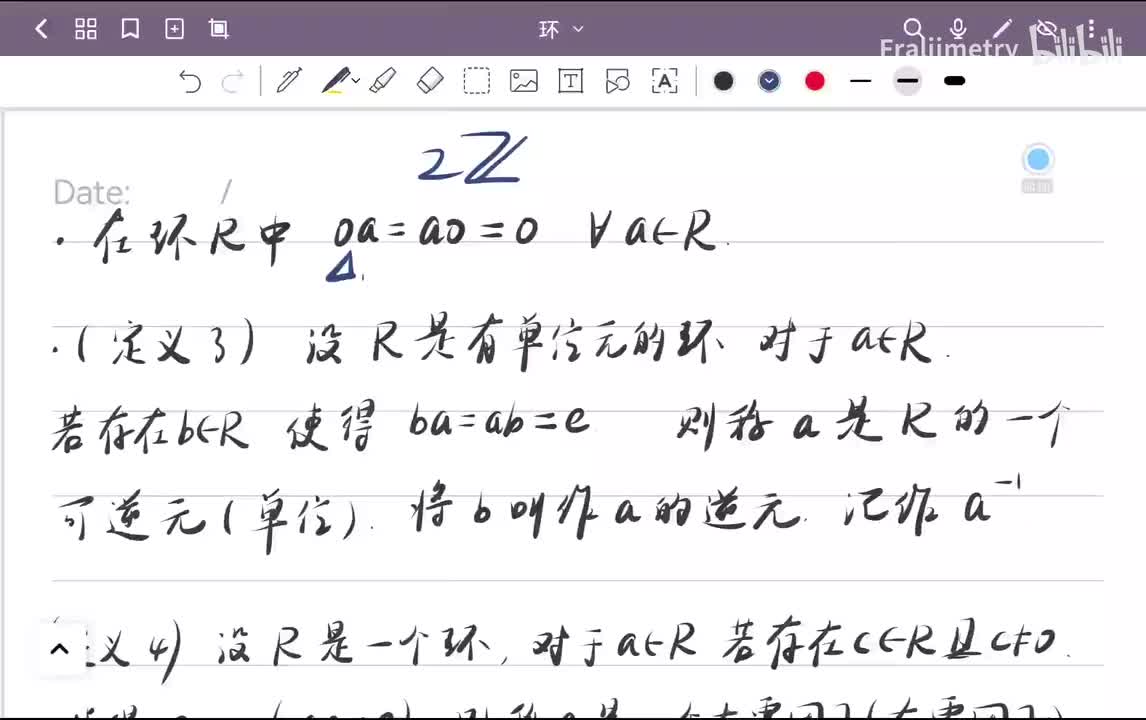 环
Fraliimetry bilibili
2ℤ
Date: /
· 在环R中 0a=a0=0 ∀a∈R.
·(定义3) 设R是有单位元的环 对于a∈R.
若存在b∈R 使得 ba=ab=e 则称a是R的一个
可逆元(单位). 将b叫作a的逆元. 记作 a⁻¹
义4) 设R是一个环, 对于a∈R 若存在c∈R且c≠0.